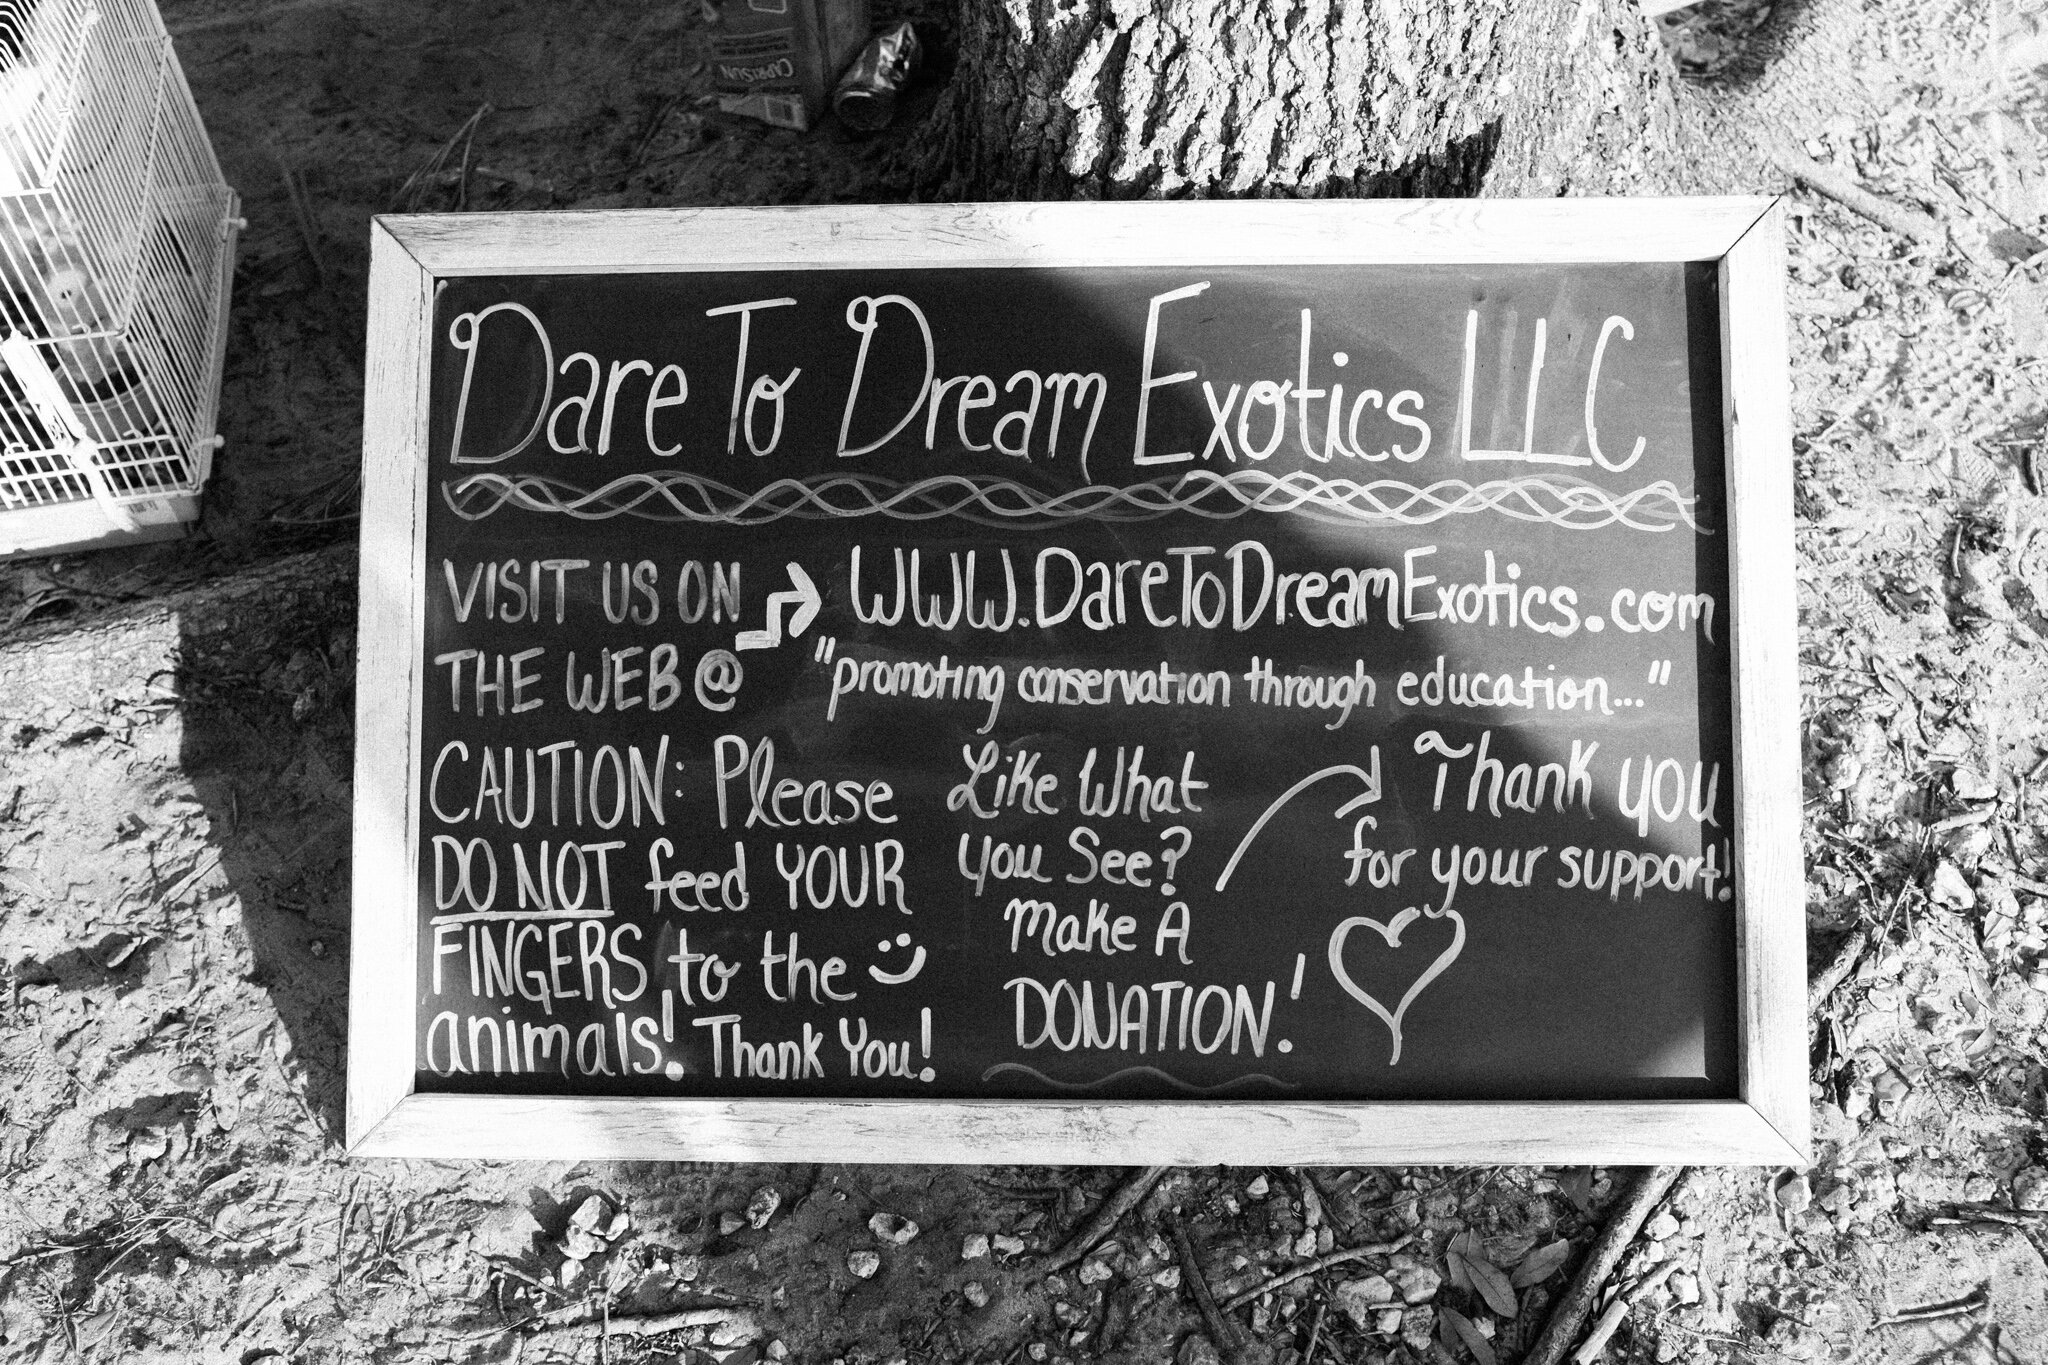 Dare To Dream Exotics LLC
VISIT US ON
THE WEB @
WWW.DareToDreamExotics.com
"promoting conservation through education..."
CAUTION: Please
DO NOT feed YOUR
FINGERS to the
animals! Thank You!
Like What
you See?
Make A
DONATION!
Thank you
for your support!
CAPRISUN